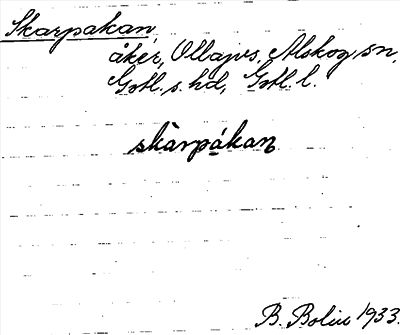 Skarpakan
åker, Ollajvs, Alskog sn,
Gotl. s. hd, Gotl. l.
skàrpákan
B. Bolin 1933.